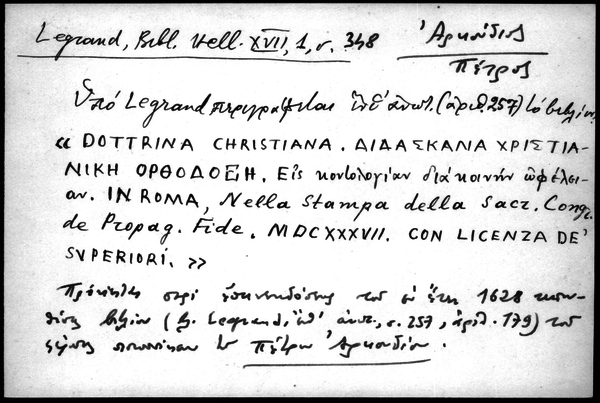 Legrand, Bibl. Hell. XVII, 1, σ. 348 Ἀρκούδιος
Πέτρος
Ὑπό Legrand περιγράφεται ἔνθ' ἀνωτ. (ἀριθ. 257) τό βιβλίον
« DOTTRINA CHRISTIANA. ΔΙΔΑΣΚΑΛΙΑ ΧΡΙΣΤΙΑ-
ΝΙΚΗ ΟΡΘΟΔΟΞΗ. Εἰς κοντολογίαν διά κοινήν ὠφέλει-
αν. IN ROMA, Nella Stampa della Sacr. Congr.
de Propag. Fide. MDCXXXVII. CON LICENZA DE'
SVPERIORI. »
Πρόκειται περί ἐπανεκδόσεως τοῦ ἐν ἔτει 1628
βιβλίου (β. Legrand, ἔνθ' ἀνωτ., σ. 257, ἀριθ. 179) τοῦ
Πέτρου Ἀρκουδίου.